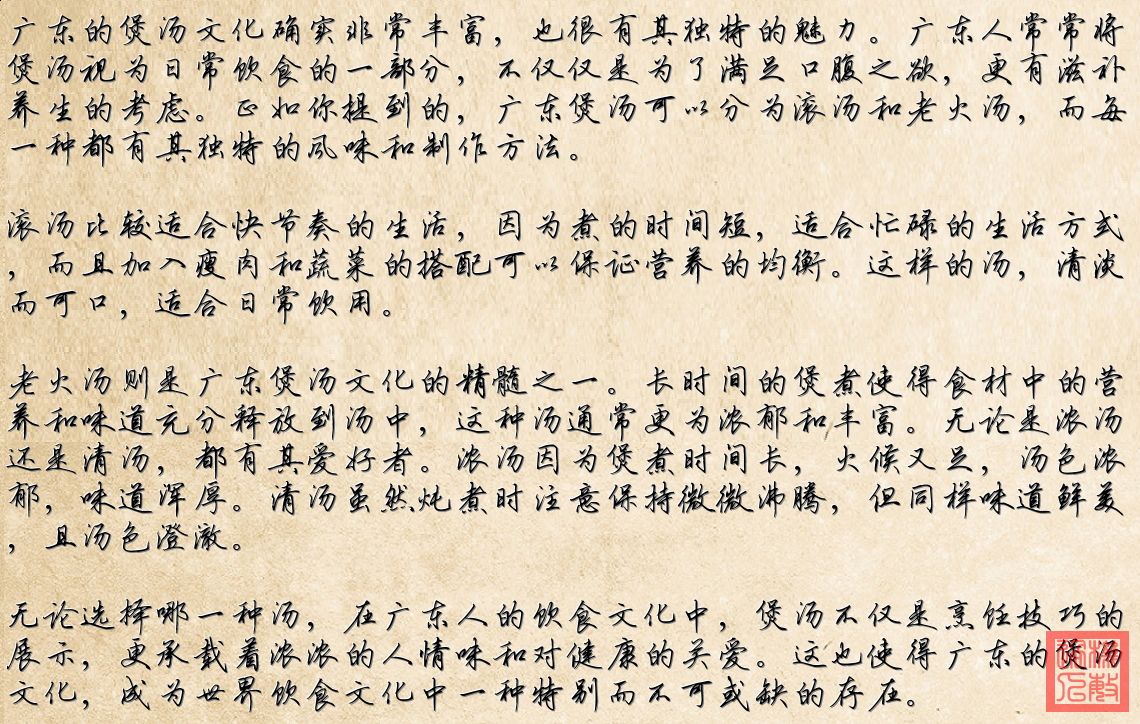 广东的煲汤文化确实非常丰富，也很有其独特的魅力。广东人常常将
煲汤视为日常饮食的一部分，不仅仅是为了满足口腹之欲，更有滋补
养生的考虑。正如你提到的，广东煲汤可以分为滚汤和老火汤，而每
一种都有其独特的风味和制作方法。
滚汤比较适合快节奏的生活，因为煮的时间短，适合忙碌的生活方式
，而且加入瘦肉和蔬菜的搭配可以保证营养的均衡。这样的汤，清淡
而可口，适合日常饮用。
老火汤则是广东煲汤文化的精髓之一。长时间的煲煮使得食材中的营
养和味道充分释放到汤中，这种汤通常更为浓郁和丰富。无论是浓汤
还是清汤，都有其爱好者。浓汤因为煲煮时间长，火候又足，汤色浓
郁，味道浑厚。清汤虽然炖煮时注意保持微微沸腾，但同样味道鲜美
，且汤色澄澈。
无论选择哪一种汤，在广东人的饮食文化中，煲汤不仅是烹饪技巧的
展示，更承载着浓浓的人情味和对健康的关爱。这也使得广东的煲汤
文化，成为世界饮食文化中一种特别而不可或缺的存在。